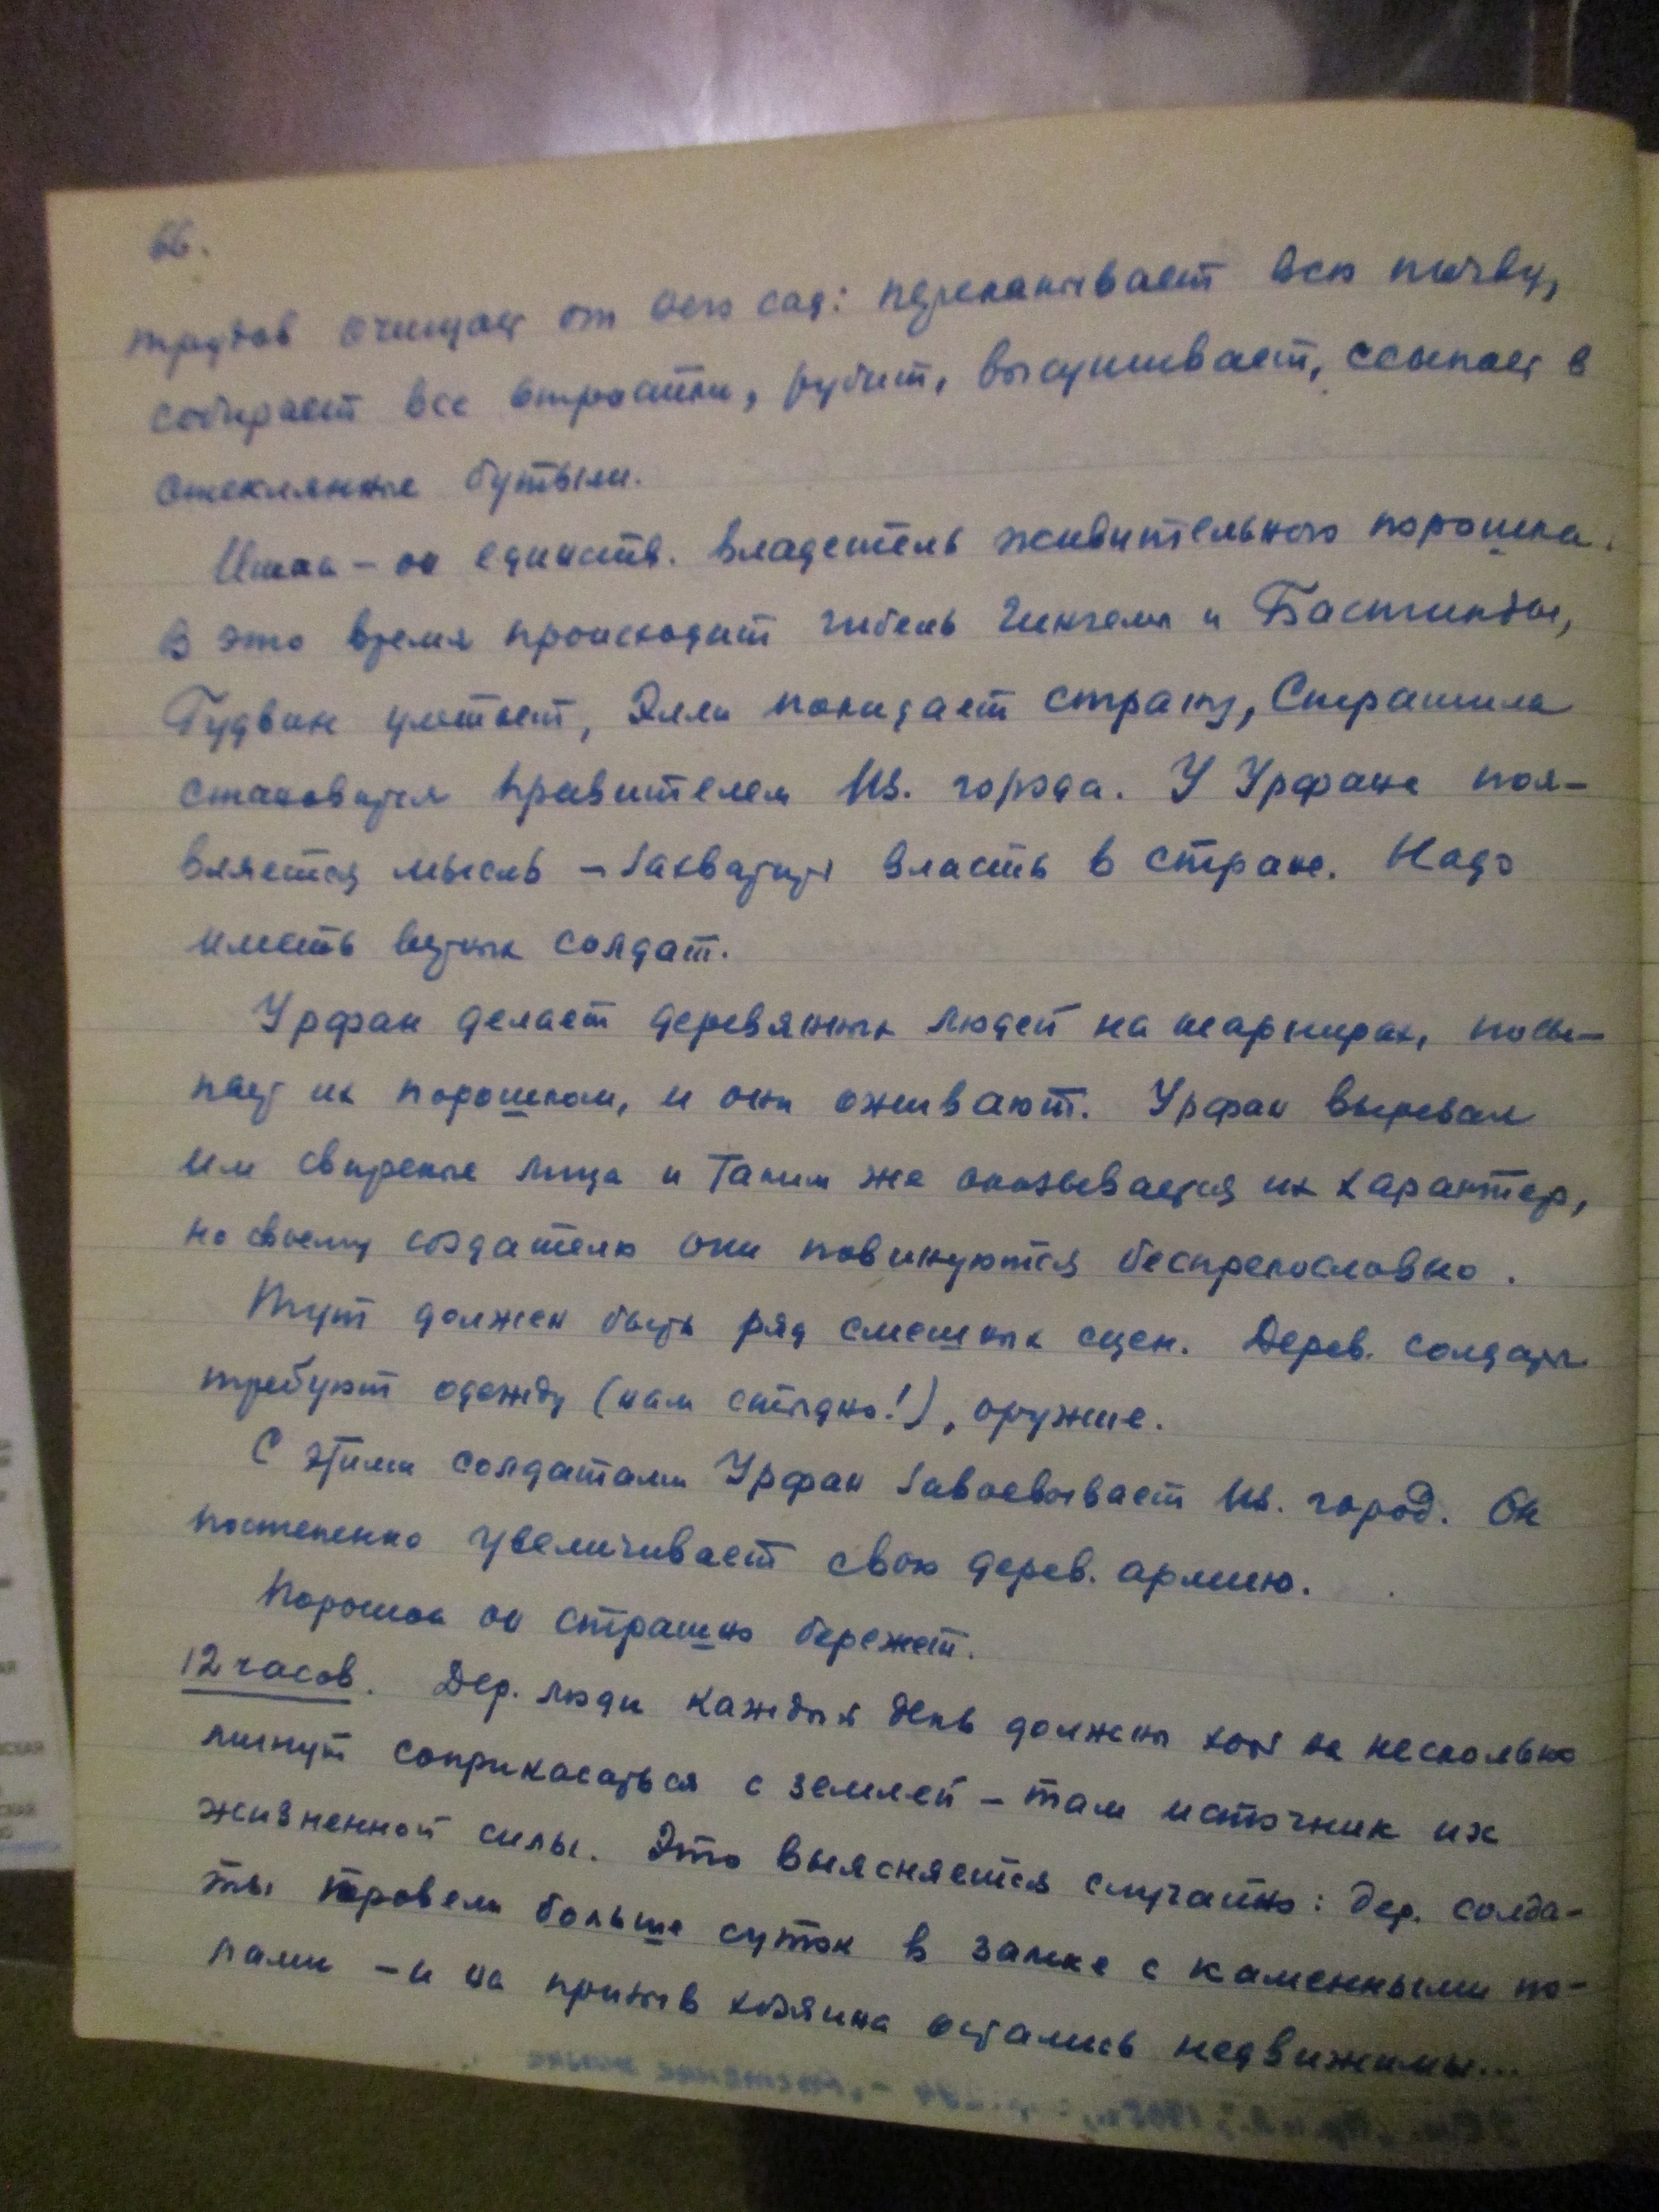 66.
трудов очищает от него сад: перекапывает всю почву,
собирает все отростки, рубит, высушивает, ссыпает в
стеклянные бутыли.
Итак – он единств. владетель живительного порошка.
В это время происходит гибель Гингемы и Бастинды,
Гудвин улетает, Элли покидает страну, Страшила
становится правителем Из. города. У Урфана поя-
вляется мысль – захватить власть в стране. Надо
иметь верных солдат.
Урфан делает деревянных людей на шарнирах, посы-
пает их порошком, и они оживают. Урфан вырезал
им свирепые лица и таким же оказывается их характер,
но своему создателю они повинуются беспрекословно.
Тут должен быть ряд смешных сцен. Дерев. солдаты
требуют одежду (нам стыдно!), оружие.
С этими солдатами Урфан завоевывает Из. город. Он
постепенно увеличивает свою дерев. армию.
Порошок он страшно бережет.
12 часов. Дер. люди каждый день должны хоть на несколько
минут соприкасаться с землей – там источник их
жизненной силы. Это выясняется случайно: дер. солда-
ты провели больше суток в замке с каменными по-
лами – и на призыв хозяина остались недвижимы...